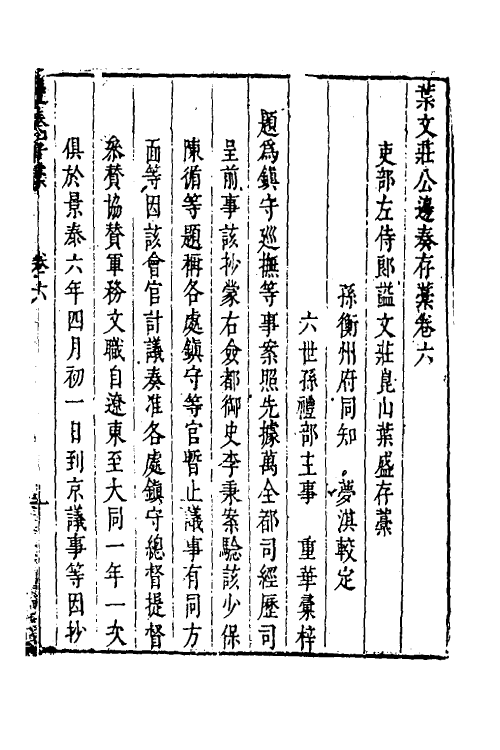 葉文莊公邊奏存藁卷六
吏部左侍郎謚文莊崑山葉盛存藁
孫衡州府同知 夢淇較定
六世孫禮部主事 重華彙梓
題爲鎮守巡撫等事案照先據萬全都司經歷司
呈前事該抄蒙右僉都御史李秉案驗該少保
陳循等題稱各處鎮守等官暫止議事有同方
面等因該會官計議奏准各處鎮守總督提督
叅賛協賛軍務文職自遼東至大同一年一次
俱於景泰六年四月初一日到京議事等因抄
卷六